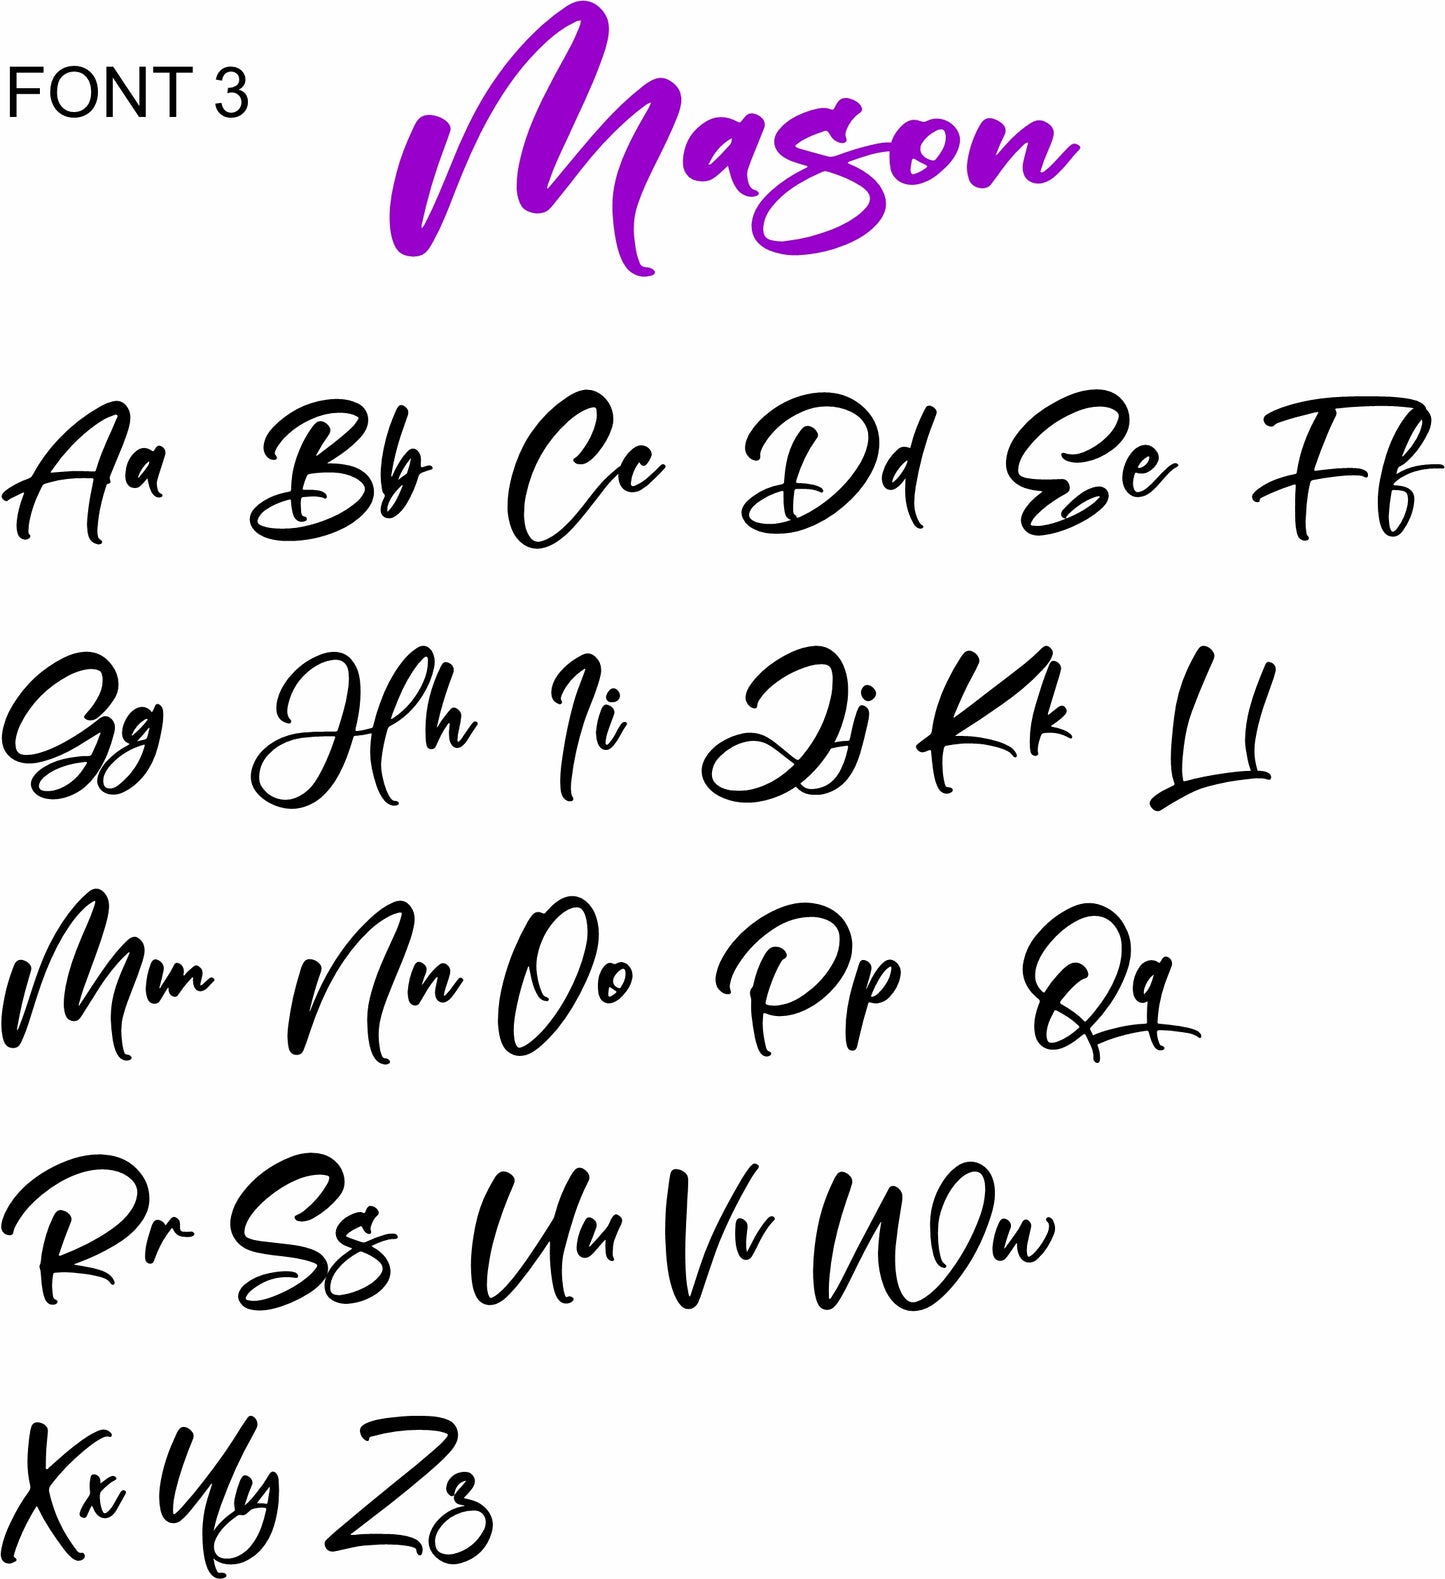 FONT 3
Mason
Aa Bb Cc Dd Ee Ff
Gg Hh Ii Jj Kk Ll
Mm Nn Oo Pp Qq
Rr Ss Uu Vv Ww
Xx Yy Zz